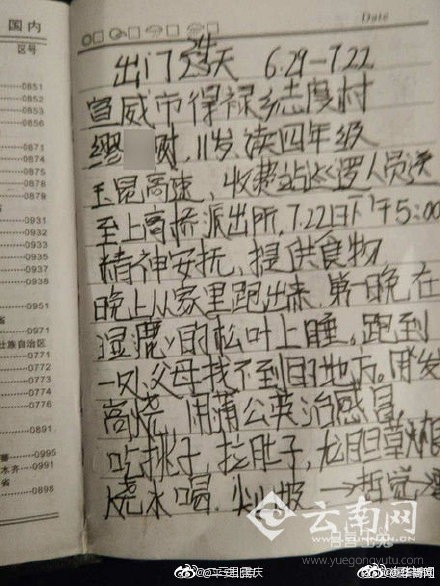 国内
Date
区号
0851
0852
0853
0856
0871
0874
0875
0878
0879
0931
0932
0934
0937
0938
0951
0971
壮族自治区
0771
0772
0773
0774
0776
0891
0995
水齐 0991
0898
出门25天 6.29-7.22
宣威市得禄乡志度村
缪 财,11岁,读四年级
玉昆高速,收费站巡逻人员送
至上哥桥派出所,7.22日下午5:00
精神安抚,提供食物
晚上从家里跑出来,第一晚在
湿漉漉的松叶上睡,跑到
一处父母找不到的地方。
高烧,用蒲公英治感冒
吃桃子,拉肚子,龙胆草根
烧水喝
云南网
www.yuegongyutu.com